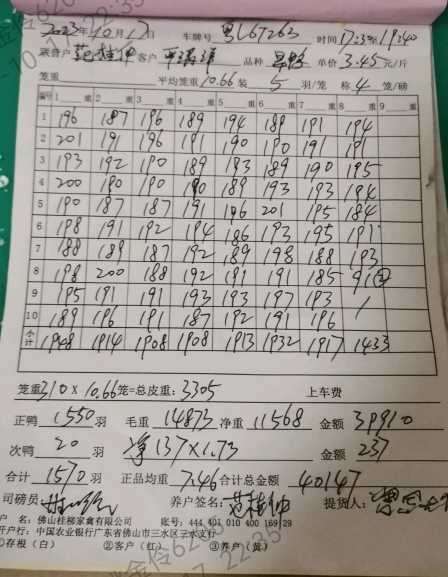 2023年10月17日 车牌号 粤L67263 时间17:23至19:40
客户 品种 单价 3.45元/斤
笼重 平均笼重10.66 装 5 羽/笼 称 4 笼/磅
编号 1 重 2 重 3 重 4 重 5 重 6 重 7 重 8 重 9 重
1 196 187 196 189 194 189 191 194
2 201 191 196 191 190 190 191 191
3 193 192 190 189 193 189 190 195
4 200 190 190 190 189 193 193 194
5 190 187 187 191 196 201 195 184
6 198 191 192 194 186 193 195 191
7 188 189 187 192 189 198 188 193
8 198 200 188 192 191 191 185 91②
9 195 191 191 193 193 197 193 /
10 189 196 191 187 192 191 196
小计 1948 1914 1908 1908 1913 1932 1917 1433
笼重310 X 10.66笼=总皮重: 3305 上车费
正鸭 1550 羽 毛重 14873 净重 11568 金额 39910
次鸭 20 羽 净137×1.73 金额 237
合计 1570 羽 正品均重 7.46 合计总金额 40147
司磅员: 养户签名: 提货人:
户 名: 佛山桂梯家禽有限公司 账号: 444 401 010 400 169 29
开户行: 中国农业银行广东省佛山市三水区三水支行
①存根(白) ②客户(红) ③养户(黄)